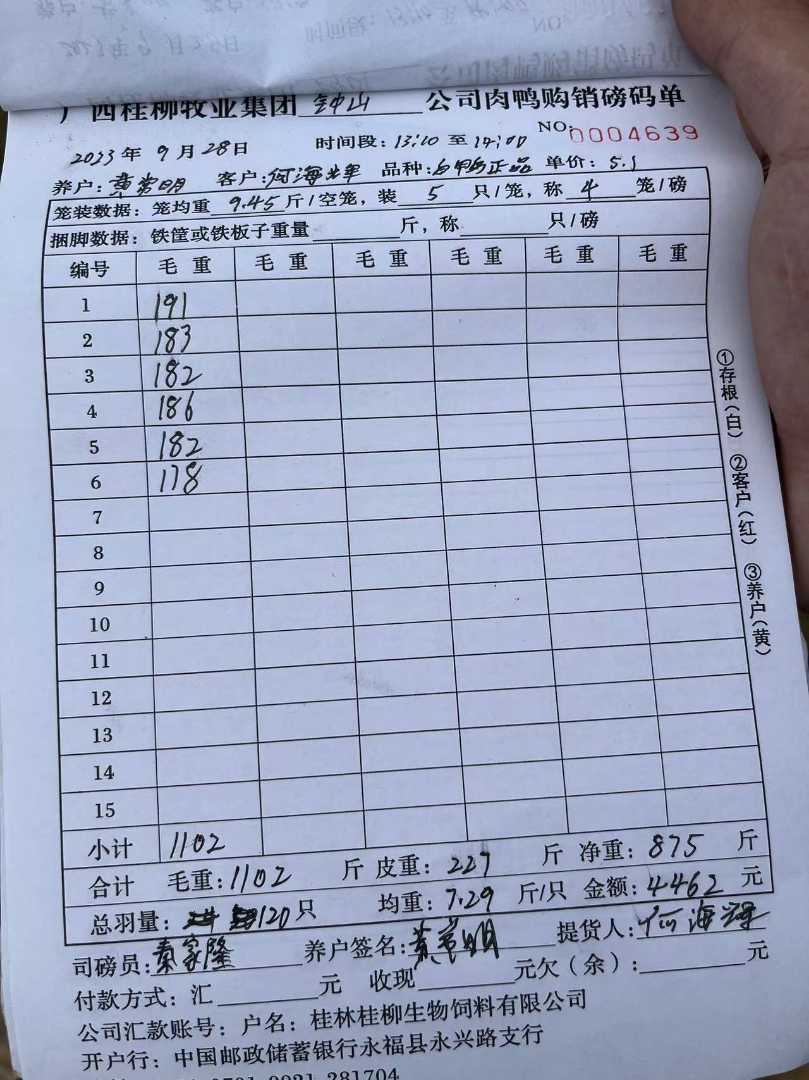 广西桂柳牧业集团 钟山 公司肉鸭购销磅码单
NO: 0004639
2023 年 9 月 28 日 时间段: 13:10 至 14:00
养户: 黄常明 客户: 何海辉 品种: 白鸭正品 单价: 5.1
笼装数据: 笼均重 9.45 斤/空笼, 装 5 只/笼, 称 4 笼/磅
捆脚数据: 铁筐或铁板子重量 斤, 称 只/磅
编号 毛重 毛重 毛重 毛重 毛重 毛重
1 191
2 183
3 182
4 186
5 182
6 178
7
8
9
10
11
12
13
14
15
小计 1102
合计 毛重: 1102 斤 皮重: 227 斤 净重: 875 斤
总羽量: 120 只 均重: 7.29 斤/只 金额: 4462 元
司磅员: 秦家隆 养户签名: 黄常明 提货人: 何海辉
付款方式: 汇 元 收现 元欠(余): 元
公司汇款账号: 户名: 桂林桂柳生物饲料有限公司
开户行: 中国邮政储蓄银行永福县永兴路支行
281704
①存根(白) ②客户(红) ③养户(黄)